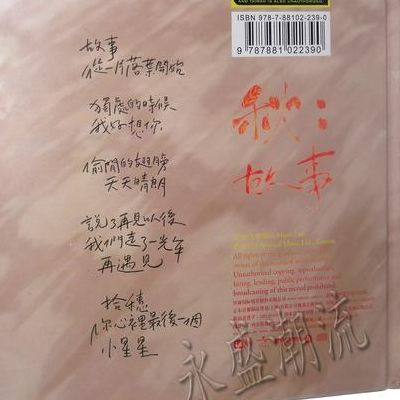 AND TAIWAN IS ALSO UNAUTHORISED.
ISBN 978-7-88102-239-0
9 787881 022390
故事
從一片落葉開始
獨處的時候
我好想你
偷閒的翅膀
天天晴朗
說了再見以後
我們走了一光年
再遇見
拾穗
你心裡最後一個
小星星
秋:
故事
All rights of the
Unauthorised copying, reproduction,
hiring, lending, public performance and
broadcasting of this record prohibited.
永盛潮流